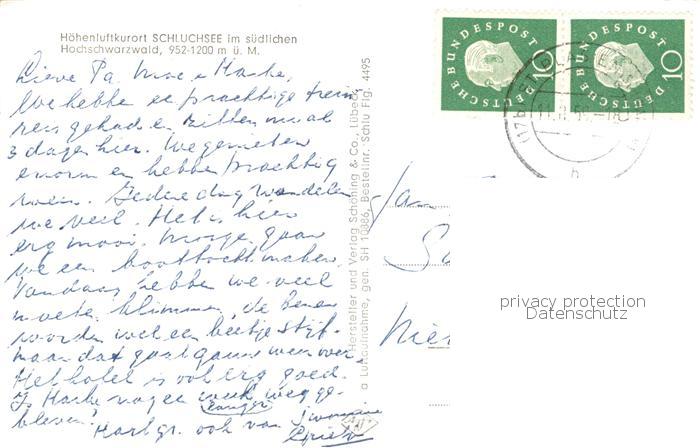 Höhenluftkurort SCHLUCHSEE im südlichen
Hochschwarzwald, 952-1200 m ü. M.
Lieve Pa, Moe e
We hebbe ee prachtige trein
reis gehad en zitten nu al
3 dagen hier. We genieten
enorm en hebbe prachtig
weer. Iedere dag wandelen
we veel. Het is hier
erg mooi. Morge gaan
we een boottocht maken.
Vandaag hebben we veel
moete klimmen, de benen
worden wel een beetje stijf.
maar dat gaat gauw weer over.
Het hotel is ook erg goed.
weg ge-
langer
bleven?
Hartgr. ook van
Hersteller und Verlag Schöning & Co., Lübeck
Luftaufnahme, gen. SH 10386, Bestellnr. Schlu Flg. 4495
DEUTSCHE BUNDESPOST
10
DEUTSCHE BUNDESPOST
10
(17b)
privacy protection
Datenschutz